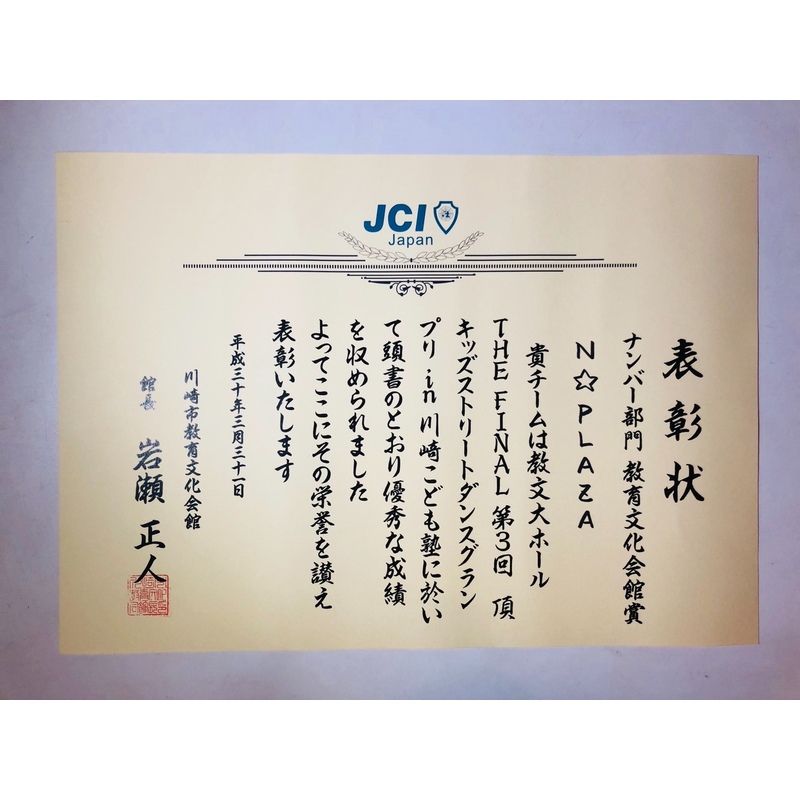 JCI
Japan
表彰状
ナンバー部門 教育文化会館賞
N☆PLAZA
貴チームは教文大ホール
THE FINAL 第3回 頂
キッズストリートダンスグラン
プリ in 川崎こども塾に於い
て頭書のとおり優秀な成績
を収められました
よってここにその栄誉を讃え
表彰いたします
平成三十年三月三十一日
川崎市教育文化会館
館長 岩瀬 正人